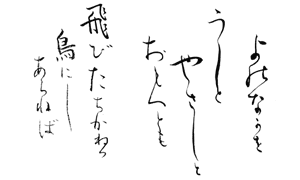 よのなかを
うしと
やさしと
おもへども
飛びたちかねつ
鳥にし
あらねば